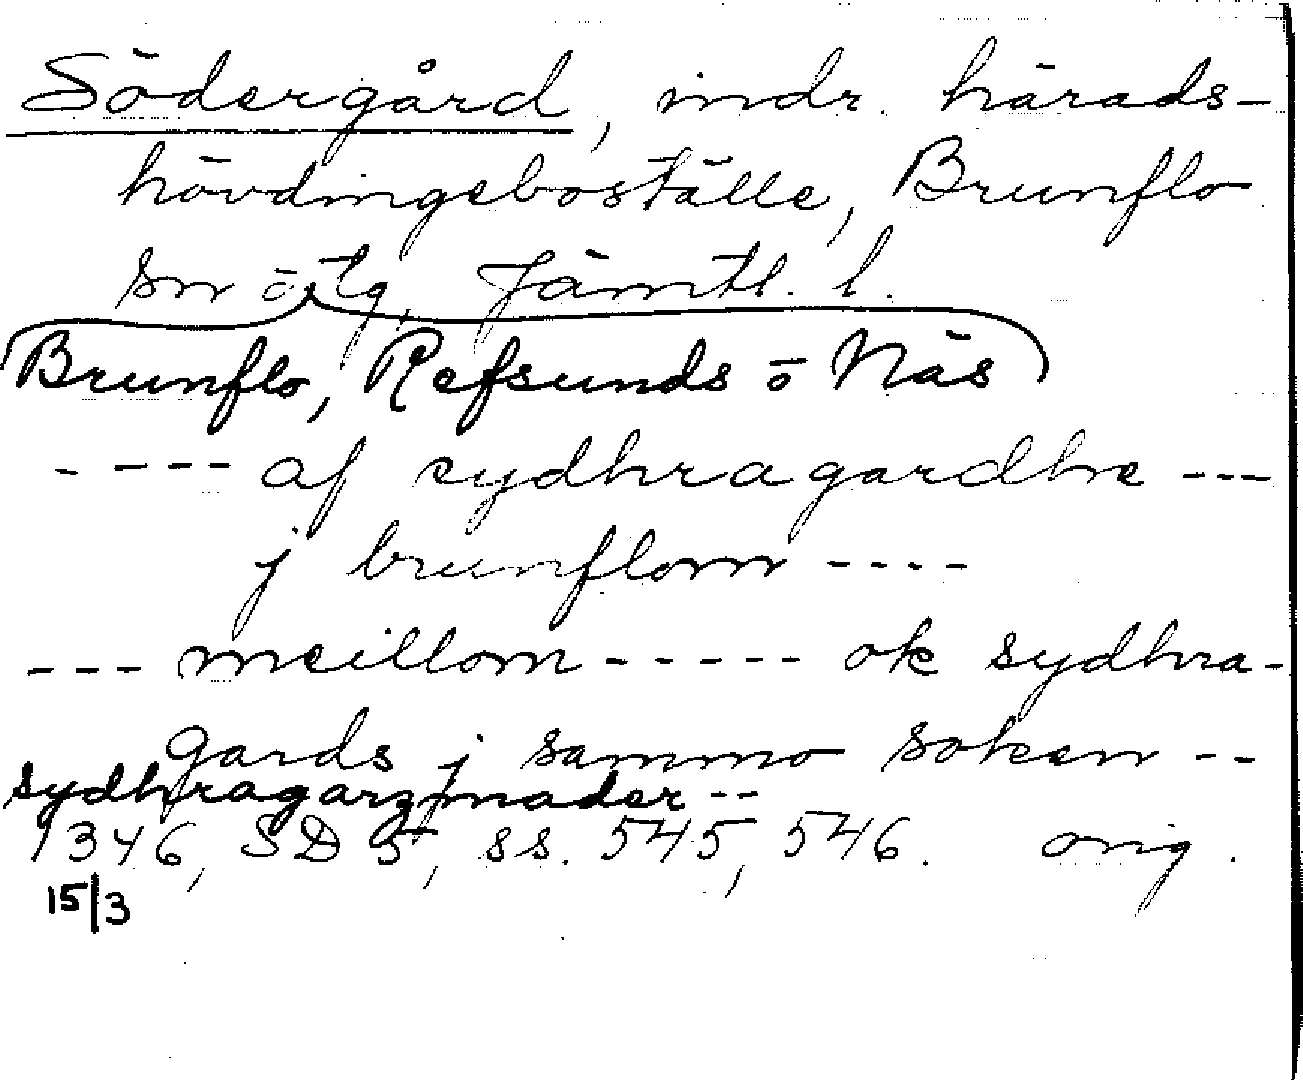 Södergård, indr. härads-
hövdingeboställe, Brunflo
sn ō tg, Jämtl. l.
Brunflo, Refsunds ō Näs
---- af sydhragardhe ---
j brunflom ----
--- meillom ----- ok sydhra-
gards j sammo soken --
sydhragarz mader --
1346, SD 5, ss. 545, 546. orig.
15/3